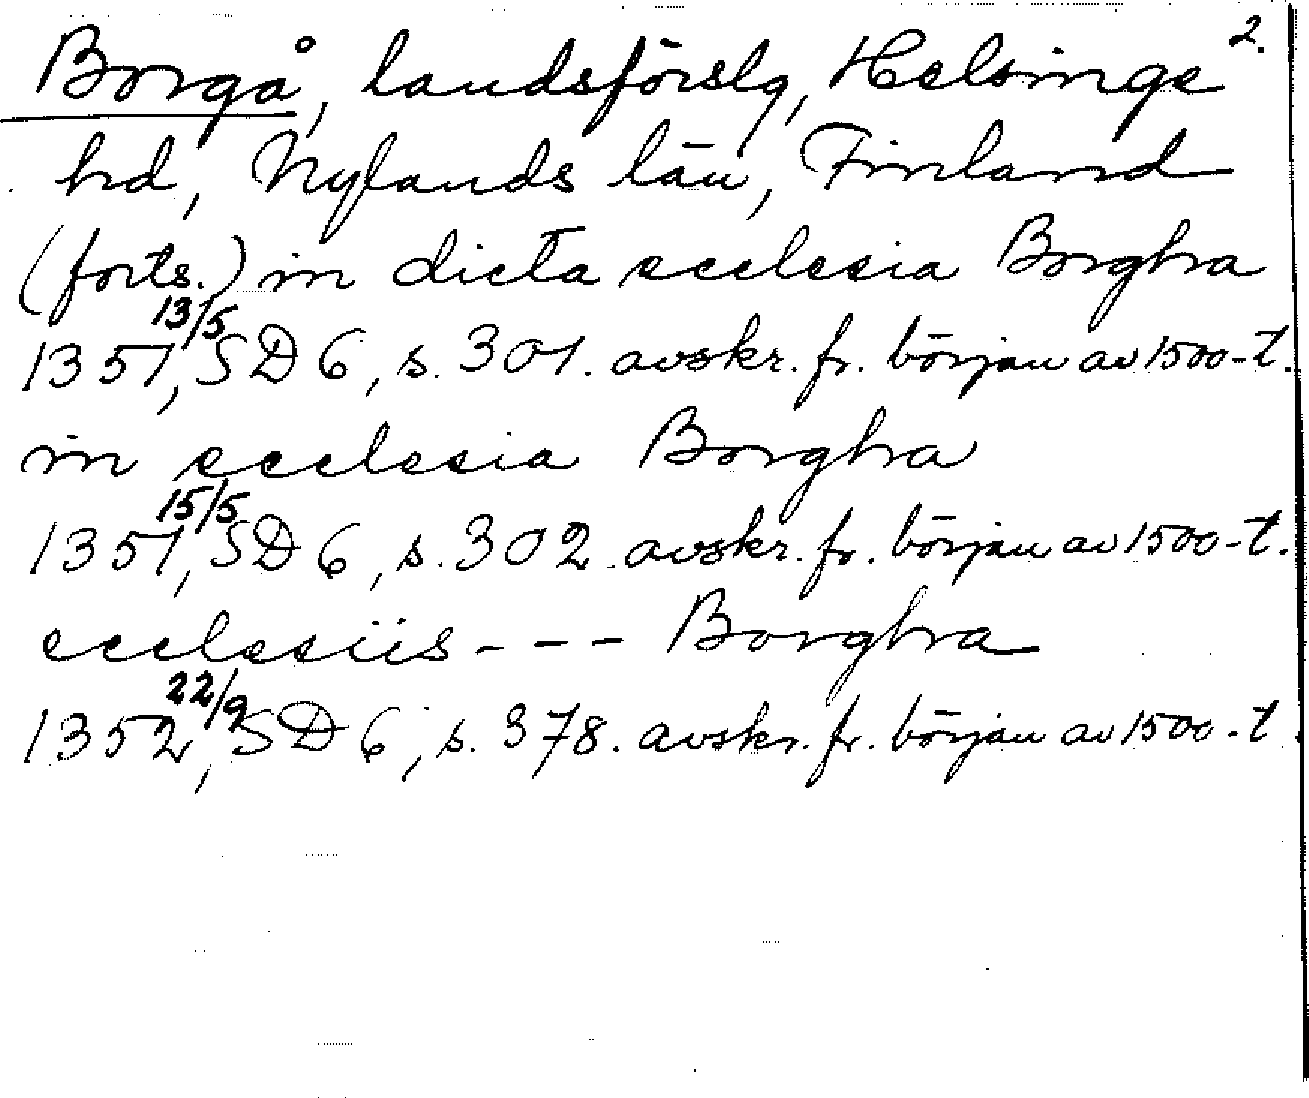 2.
Borgå, landsförslg, Helsinge
hd, Nylands län, Finland
(forts.) in dicta ecclesia Borgha
1351 13/5, SD 6, s. 301. avskr. fr. början av 1500-t.
in ecclesia Borgha
1351 15/5, SD 6, s. 302. avskr. fr. början av 1500-t.
ecclesiis - - - Borgha
1352 22/9, SD 6, s. 378. avskr. fr. början av 1500-t.